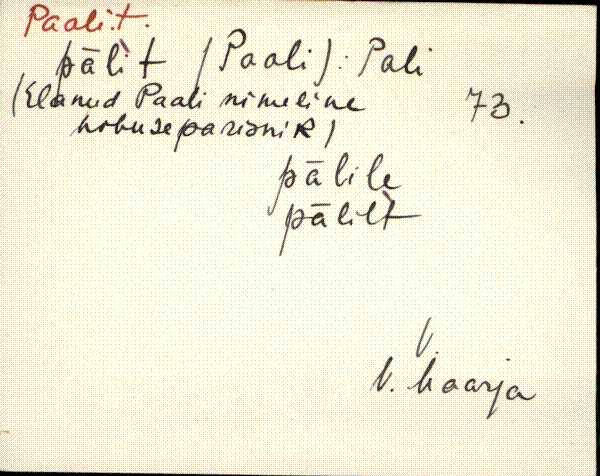 Paali:t.
pāli̮t (Paali): Pali
(Elanud Paali nimeline 73.
hobuseparisnik)
pālile
pālilt
V.
V. Maarja